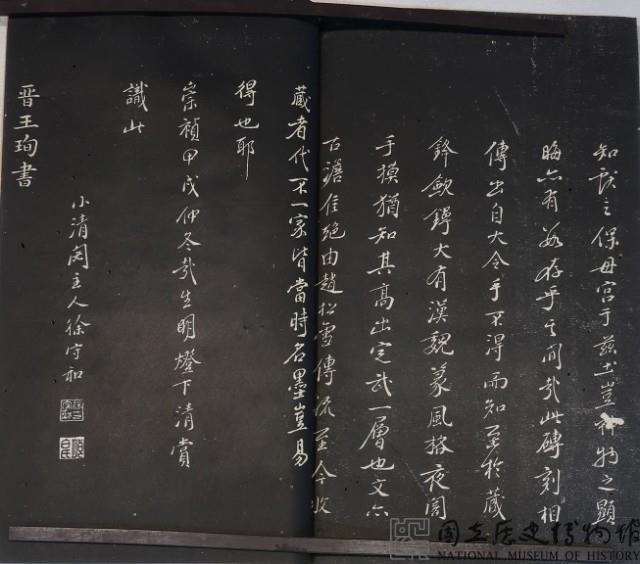 知獻之保母宮于茲土豈神物之顯
晦亦有數存乎其間哉此磚刻相
傳出自大令手不得而知至於藏
鋒斂鍔大有漢魏篆風格夜闇
手摸猶知其高出定武一層也文亦
古澹佳絕由趙松雪傳流至今收
藏者代不一家皆當時名墨豈易
得也耶
崇禎甲戌仲冬哉生明燈下清賞
識此
小清閟主人徐守和
晉王珣書
國立歷史博物館
NATIONAL MUSEUM OF HISTORY